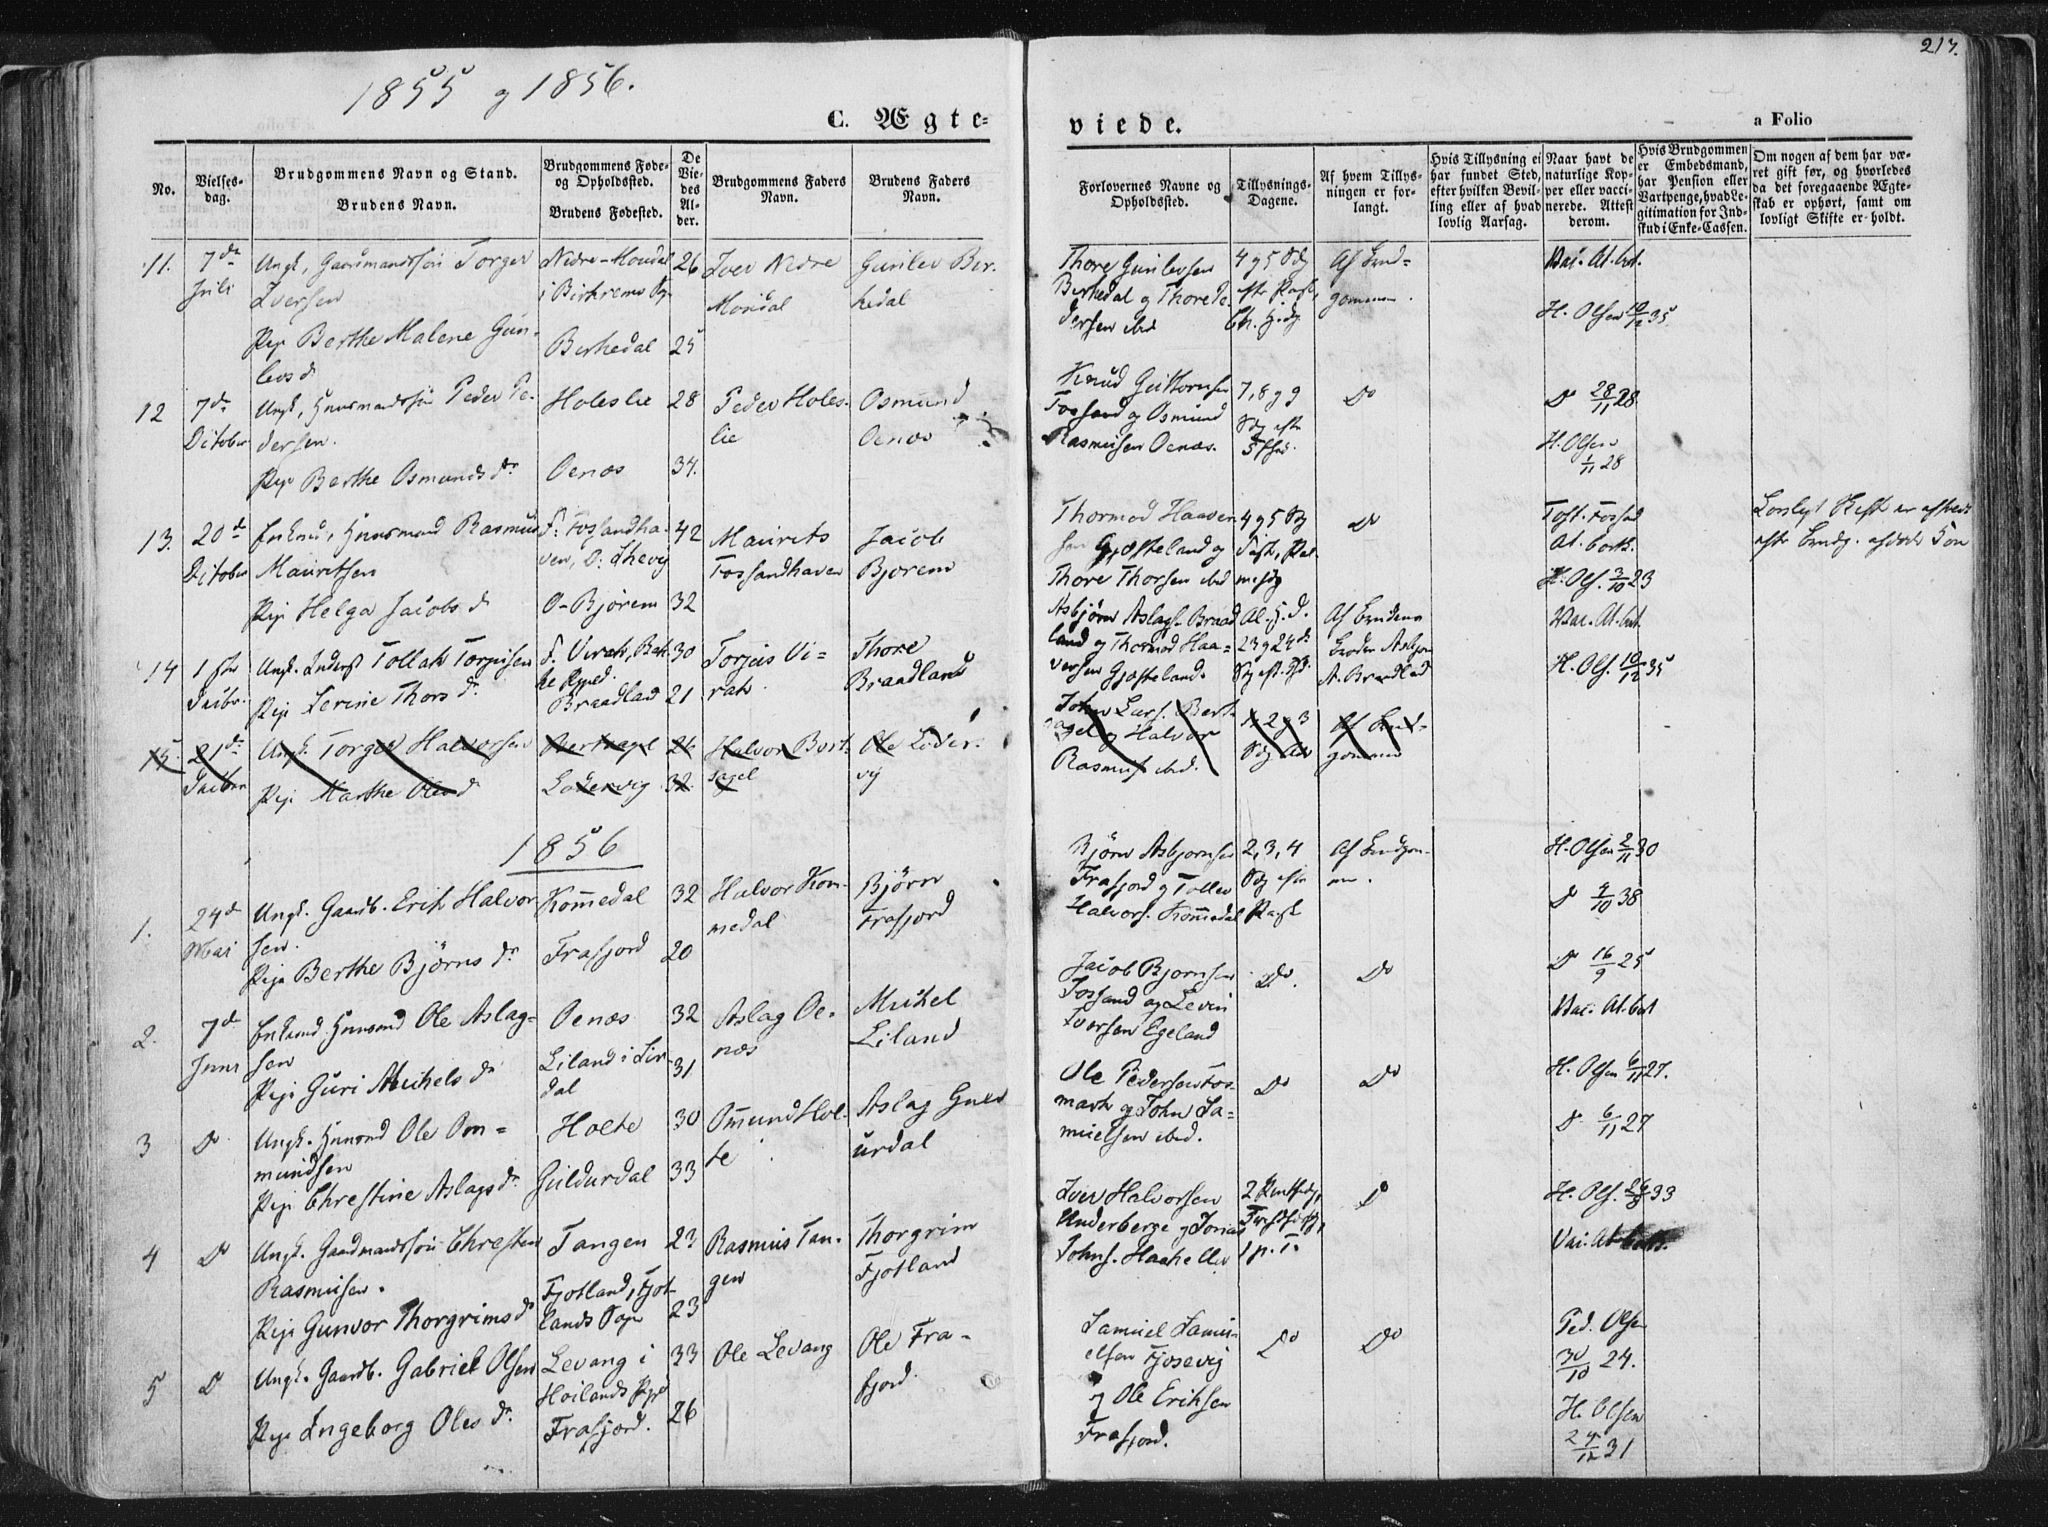 1855 og 1856.
217.
C. Ægte=
viede.
a Folio
No.
Vielses-
dag.
Brudgommens Navn og Stand.
Brudens Navn.
Brudgommens Føde-
og Opholdssted.
Brudens Fødested.
De
Vie-
des
Al-
der.
Brudgommens Faders
Navn.
Brudens Faders
Navn.
Forlovernes Navne og
Opholdssted.
Tillysnings-
Dagene.
Af hvem Tillys-
ningen er for-
langt.
Hvis Tillysning ei
har fundet Sted,
efter hvilken Bevil-
ling eller af hvad
lovlig Aarsag.
Naar havt de
naturlige Kop-
per eller vacci-
nerede. Attest
derom.
Hvis Brudgommen
er Embedsmand,
har Pension eller
Vartpenge, hvad Le-
gitimation for Ind-
skud i Enke-Cassen.
Om nogen af dem har væ-
ret gift før, og hvorledes
da det foregaaende Ægte-
skab er ophørt, samt om
lovligt Skifte er holdt.
11.
7de
Juli
Ungk. Gaarmandssøn Torger
Iversen
Pige Berthe Malene Gun-
levsd
Nedre-Mondal
i Birkrems Sogn
Berkedal
26
25
Iver Nedre
Mondal
Gunlev Ber-
kedal
Thore Gunlevsen
Berkedal og Thore Pe-
dersen ibd
4 og 5 Sdg
efter Pask,
Chr. H. dg
Af Brud=
gommen.
Vac. At. bort.
H. Olsen 10/12 35.
12
7de
October
Ungk, Huusmandssøn Peder Pe-
dersen.
Pige Berthe Osmundsdr
Holeslie
Oenæs
28
34.
Peder Holes-
lie
Osmund
Oenæs
Knud Guttormsen
Fossand og Osmund
Rasmusen Oenæs.
7, 8 og 9
Sdg efter
Do
Do 28/11 28
H. Olsen
1/11 28
13.
20d
October
Enkmd, Huusmand Rasmus
Mauritsen
Pige Helga Jacobsd
F: Fossandha-
ven, O: Thevig
O-Bjørem
42
32
Maurits
Fossandhaven
Jacob
Bjørem
Thormod Haaver
sen Gjøfteland og
Thore Thorsen ibd
4 og 5 Sdg
Fast, Pal-
mesdg
Do
Test. Fossd
At. bortk.
H. Ols. 3/10 23
Lovligt Skift er afholdt
efter Brudg. afdøde Kone
14
1ste
Ungk. Tollak Torjusen
Pige Serine Thorsdr.
F. Virak, Bak-
ke Prgd.
Braadland
30
21
Torjus Vi=
rak.
Thore
Braadland
Asbjørn Aslags. Braad
land og Thormod Haa=
versen Gjøfteland.
23 og 24de
Af Brudens
Broder Asbjørn
A. Braadland
Vac. At. bort
H. Ols. 10/12 35
15.
21de
Ungk. Torger Halvorsen
Pige Marthe Olesdr
Bertragel
Lodervig
26
32.
Halvor Bert-
ragel
Ole Loder-
vig
John Lars. Bert-
ragel og Halvor
Rasmus. ibd.
1. 2 og 3
Sdg Adv
Af Brud-
gommen
1856
1.
24d
Mai
Ungk. Gaardb. Erik Halvor
sen.
Pige Berthe Bjørnsdr
Kommedal
Frafjord
32
20
Halvor Kom-
medal
Bjørn
Frafjord
Bjørn Asbjørnsen
Frafjord og Tollev
Halvors. Kommedal
2, 3, 4
Sdg efter
Pask
Af Brudgom-
men.
H. Olsen 2/11 30
Do 4/10 38
2.
7d
Juni
Enkemd Huusmd Ole Aslag-
sen
Pige Guri Mikelsdr
Oenæs
Liland i Sir-
dal
32
31
Aslag Oe-
næs
Mikel
Liland
Jacob Bjørnsen
Fossand og Levin
Iversen Egeland
Do.
Do
Do 16/9 25
Vac. At. bort
3
Do
Ungk. Huusmd Ole Om=
mundsen
Pige Chrestine Aslagsdr.
Holte
Guldurdal
30
33
Ommund Hol-
te
Aslag Guld
urdal
Ole Pedersen Fos-
mark og John Sa=
muelsen ibd.
Do
Do
H. Olsen 6/11 27.
Do 6/11 27
4
Do
Ungk. Gaadmandssøn Chresten
Rasmusen.
Pige Gunvor Thorgrimsdr
Tangen
Fjotland, Fjot-
lands Sogn
23
23
Rasmus Tan-
gen
Thorgrim
Fjotland
Iver Halvorsen
Underberge og Jonas
Johns. Haahelle
1 p. T.
Do
H. Ols. 26/8 33
Vac. At bort.
5
Do
Ungk. Gaardb. Gabriel Olsen
Pige Ingeborg Olesdr.
Levang i
Høilands Pgd
Frafjord.
33
26
Ole Levang
Ole Fra-
fjord.
Samuel Samu-
elsen Fjosevig
og Ole Eriksen
Frafjord.
Do
Do
Ped. Olsen
30/10 24.
H. Olsen
24/12 31